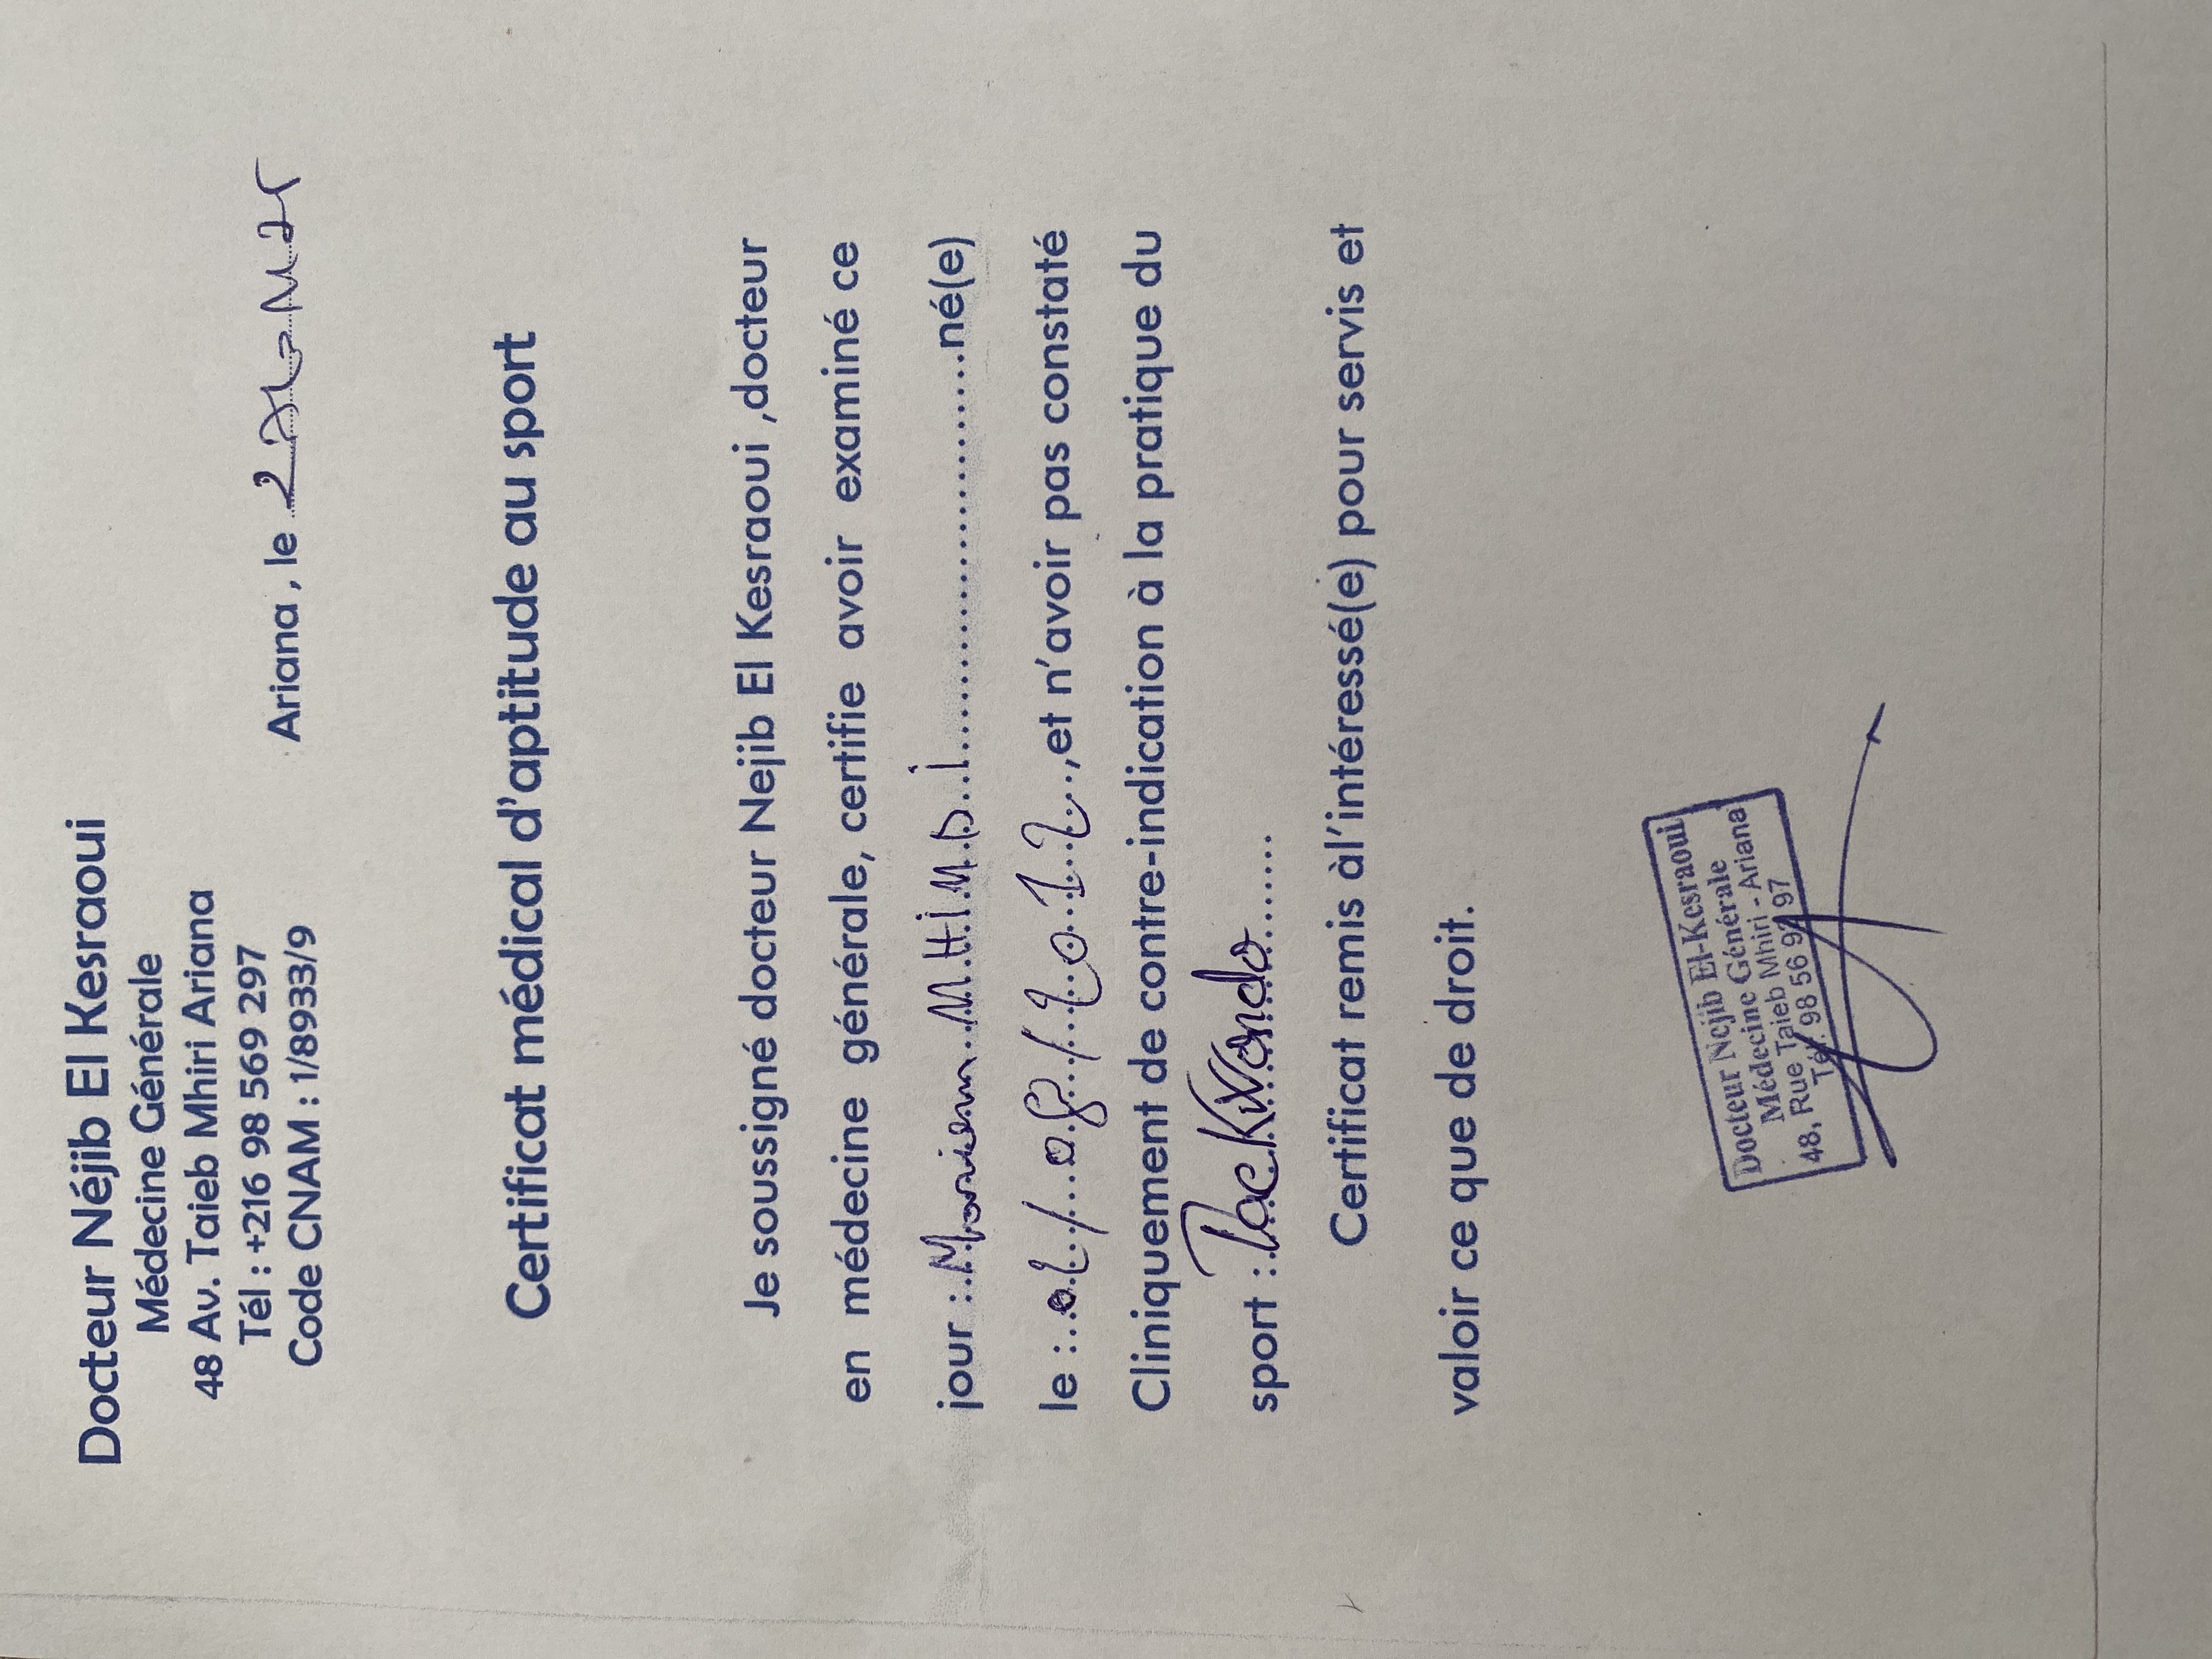 Docteur Néjib El Kesraoui
Médecine Générale
48 Av. Taieb Mhiri Ariana
Tél : +216 98 569 297
Code CNAM : 1/8933/9
Ariana , le
Certificat médical d'aptitude au sport
Je soussigné docteur Nejib El Kesraoui ,docteur
en médecine générale, certifie avoir examiné ce
jour : Mariem MHiMDi né(e)
le : 02/08/2012, et n'avoir pas constaté
Cliniquement de contre-indication à la pratique du
sport : TaeKWondo
Certificat remis àl'intéressé(e) pour servis et
valoir ce que de droit.
Docteur Nejib El-Kesraoui
Médecine Générale
48, Rue Taieb Mhiri - Ariana
Tél. 98 56 92 97